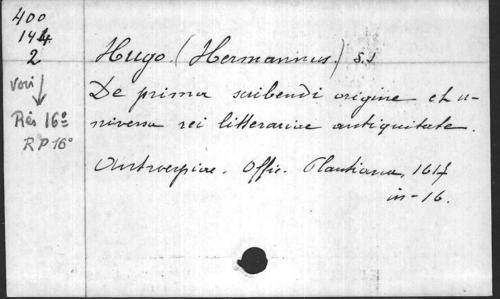 400
144
2
voir
Rés 16°
RP 16°
Hugo. (Hermannus.) S.J
De prima scribendi origine et u-
niversa rei litterariae antiquitate.
Antverpiae. Offic. Plantiana, 1617
in-16.